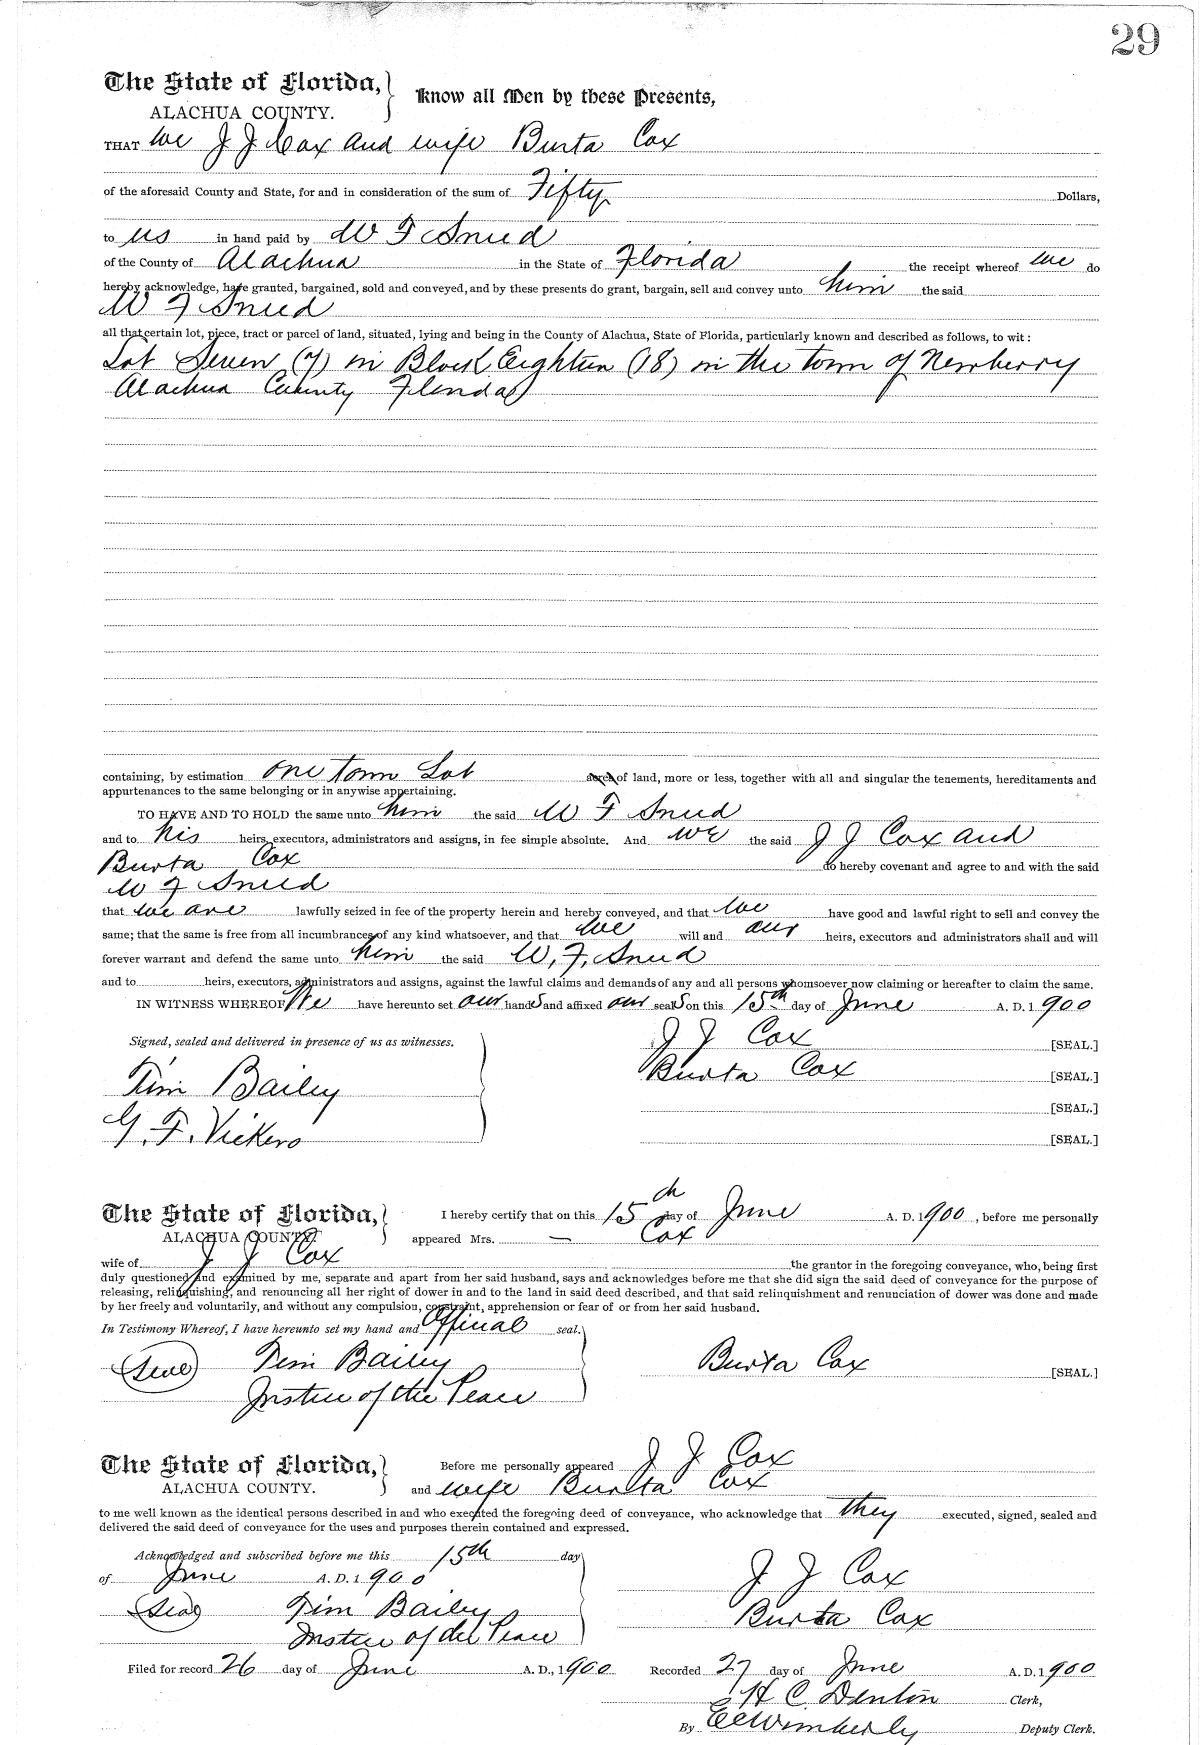 29
The State of Florida, } Know all Men by these Presents,
ALACHUA COUNTY.
THAT We J J Cox and wife Burta Cox
of the aforesaid County and State, for and in consideration of the sum of Fifty Dollars,
to us in hand paid by W F Sneed
of the County of Alachua in the State of Florida the receipt whereof we do
hereby acknowledge, have granted, bargained, sold and conveyed, and by these presents do grant, bargain, sell and convey unto him the said
W F Sneed
all that certain lot, piece, tract or parcel of land, situated, lying and being in the County of Alachua, State of Florida, particularly known and described as follows, to wit:
Lot Seven (7) in Block Eighteen (18) in the town of Newberry
Alachua County Florida
containing, by estimation one town Lot acres of land, more or less, together with all and singular the tenements, hereditaments and
appurtenances to the same belonging or in anywise appertaining.
TO HAVE AND TO HOLD the same unto him the said W F Sneed
and to his heirs, executors, administrators and assigns, in fee simple absolute. And we the said J J Cox and
Burta Cox do hereby covenant and agree to and with the said
W F Sneed
that we are lawfully seized in fee of the property herein and hereby conveyed, and that we have good and lawful right to sell and convey the
same; that the same is free from all incumbrances of any kind whatsoever, and that we will and our heirs, executors and administrators shall and will
forever warrant and defend the same unto him the said W. F. Sneed
and to heirs, executors, administrators and assigns, against the lawful claims and demands of any and all persons whomsoever now claiming or hereafter to claim the same.
IN WITNESS WHEREOF We have hereunto set our hands and affixed our seals on this 15th day of June A. D. 1900
Signed, sealed and delivered in presence of us as witnesses. J J Cox [SEAL.]
Tim Bailey Burta Cox [SEAL.]
[SEAL.]
G. F. Vickers [SEAL.]
The State of Florida, } I hereby certify that on this 15th day of June A. D. 1900, before me personally
ALACHUA COUNTY. appeared Mrs. — Cox
wife of J J Cox the grantor in the foregoing conveyance, who, being first
duly questioned and examined by me, separate and apart from her said husband, says and acknowledges before me that she did sign the said deed of conveyance for the purpose of
releasing, relinquishing, and renouncing all her right of dower in and to the land in said deed described, and that said relinquishment and renunciation of dower was done and made
by her freely and voluntarily, and without any compulsion, constraint, apprehension or fear of or from her said husband.
In Testimony Whereof, I have hereunto set my hand and Official seal.
(Seal) Tim Bailey Burta Cox [SEAL.]
Justice of the Peace
The State of Florida, } Before me personally appeared J J Cox
ALACHUA COUNTY. and wife Burta Cox
to me well known as the identical persons described in and who executed the foregoing deed of conveyance, who acknowledge that they executed, signed, sealed and
delivered the said deed of conveyance for the uses and purposes therein contained and expressed.
Acknowledged and subscribed before me this 15th day
of June A. D. 1900 J J Cox
(Seal) Tim Bailey Burta Cox
Justice of the Peace
Filed for record 26 day of June A. D., 1900 Recorded 27 day of June A. D. 1900
H C Denton Clerk,
By E C Wimberly Deputy Clerk.